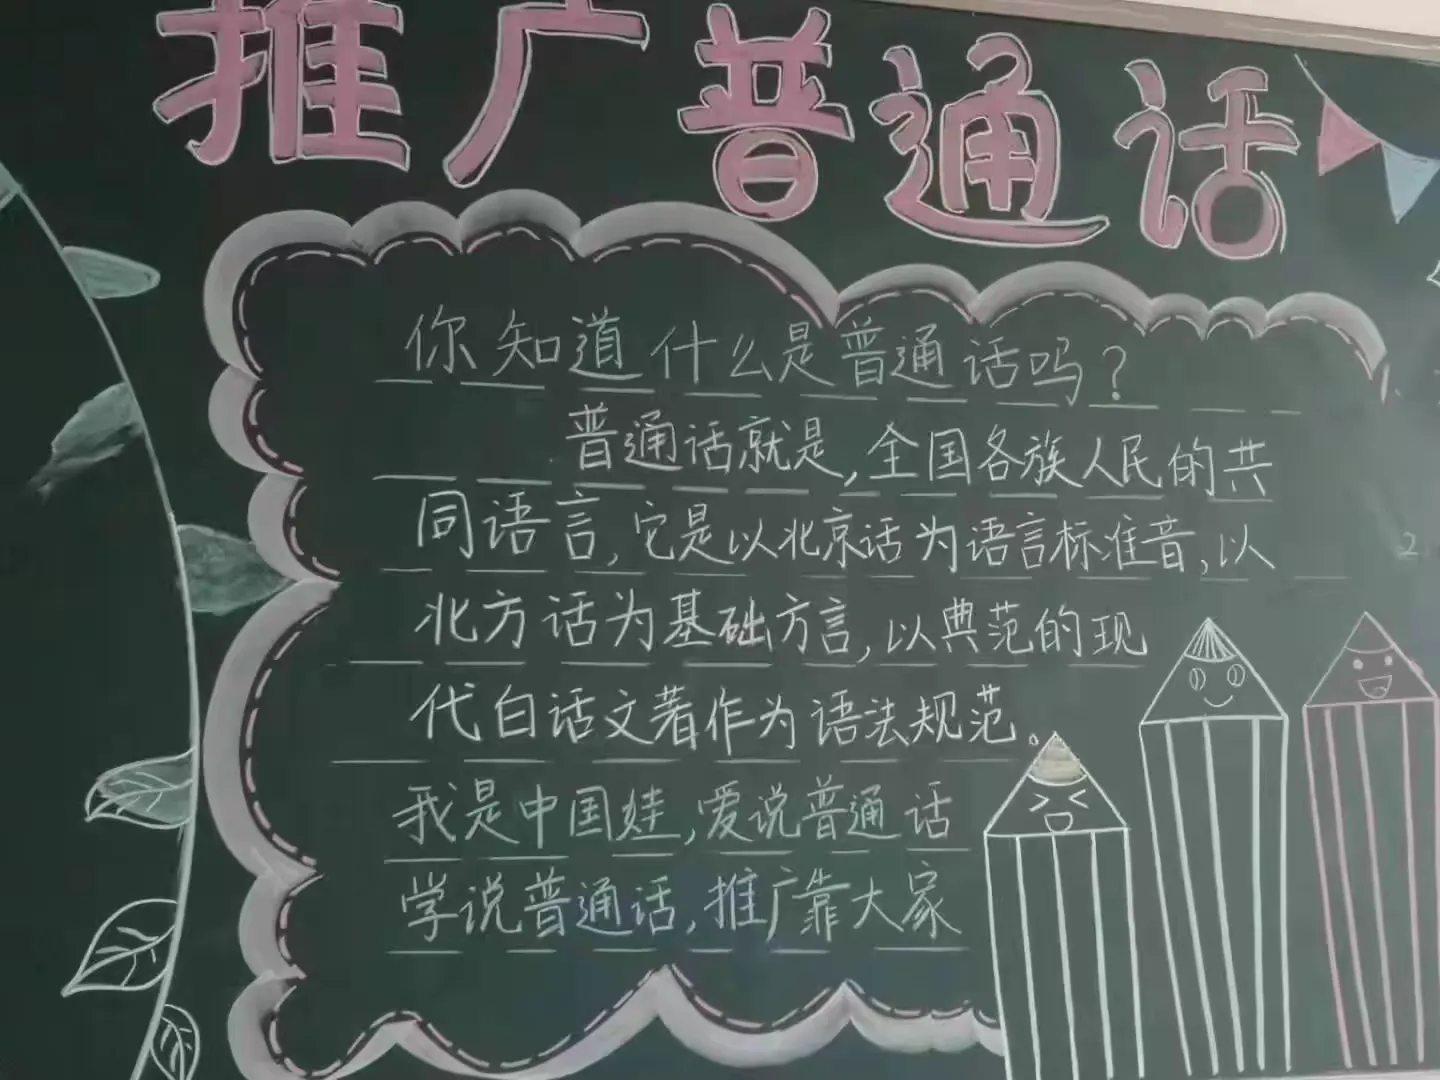 推广普通话
你知道什么是普通话吗?
普通话就是,全国各族人民的共
同语言,它是以北京话为语言标准音,以
北方话为基础方言,以典范的现
代白话文著作为语法规范.
我是中国娃,爱说普通话
学说普通话,推广靠大家
2